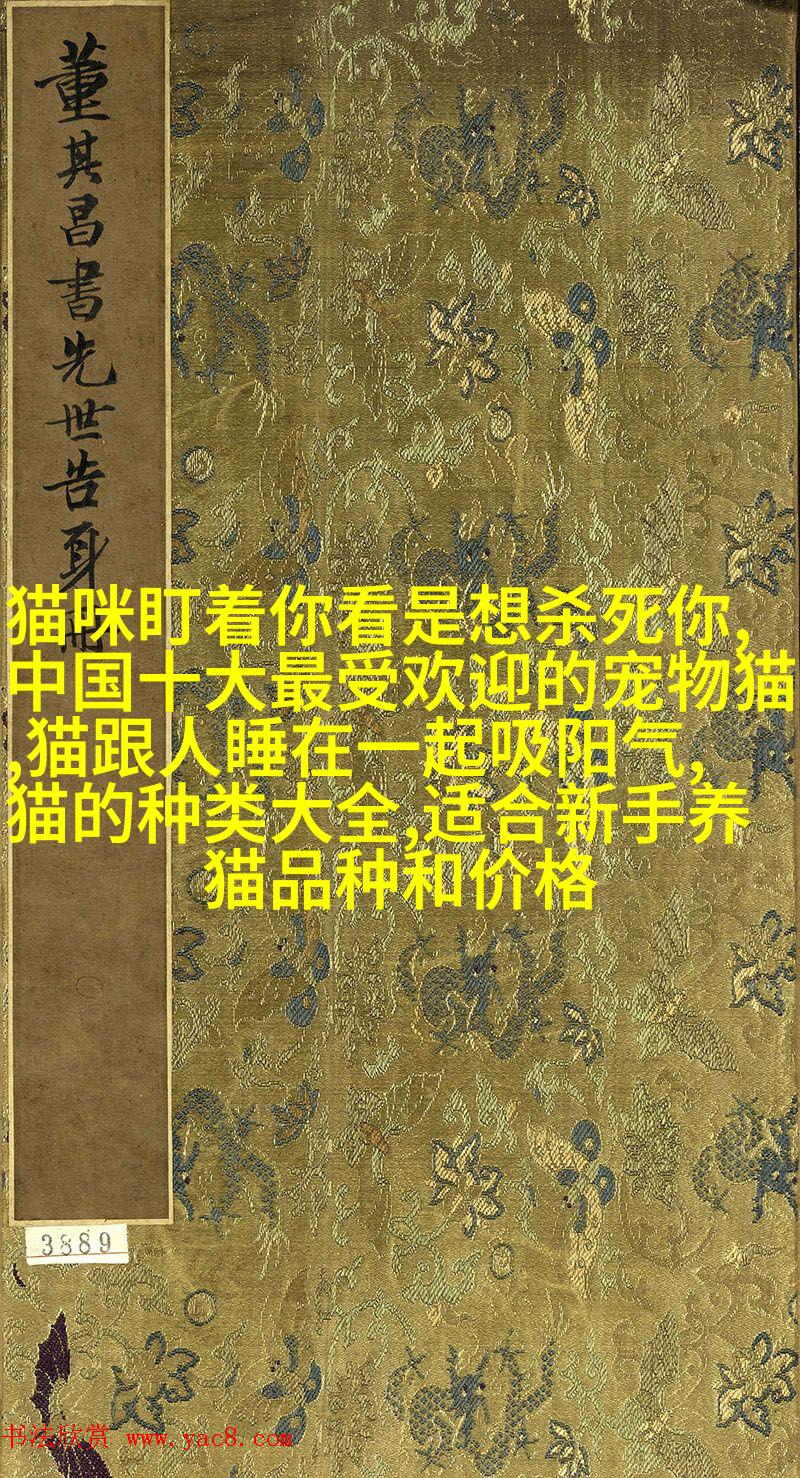 董其昌書先世告身冊
猫咪盯着你看是想杀死你,
中国十大最受欢迎的宠物猫
,猫跟人睡在一起吸阳气,
猫的种类大全,适合新手养
猫品种和价格
3889
书法欣赏 www.yac8.com